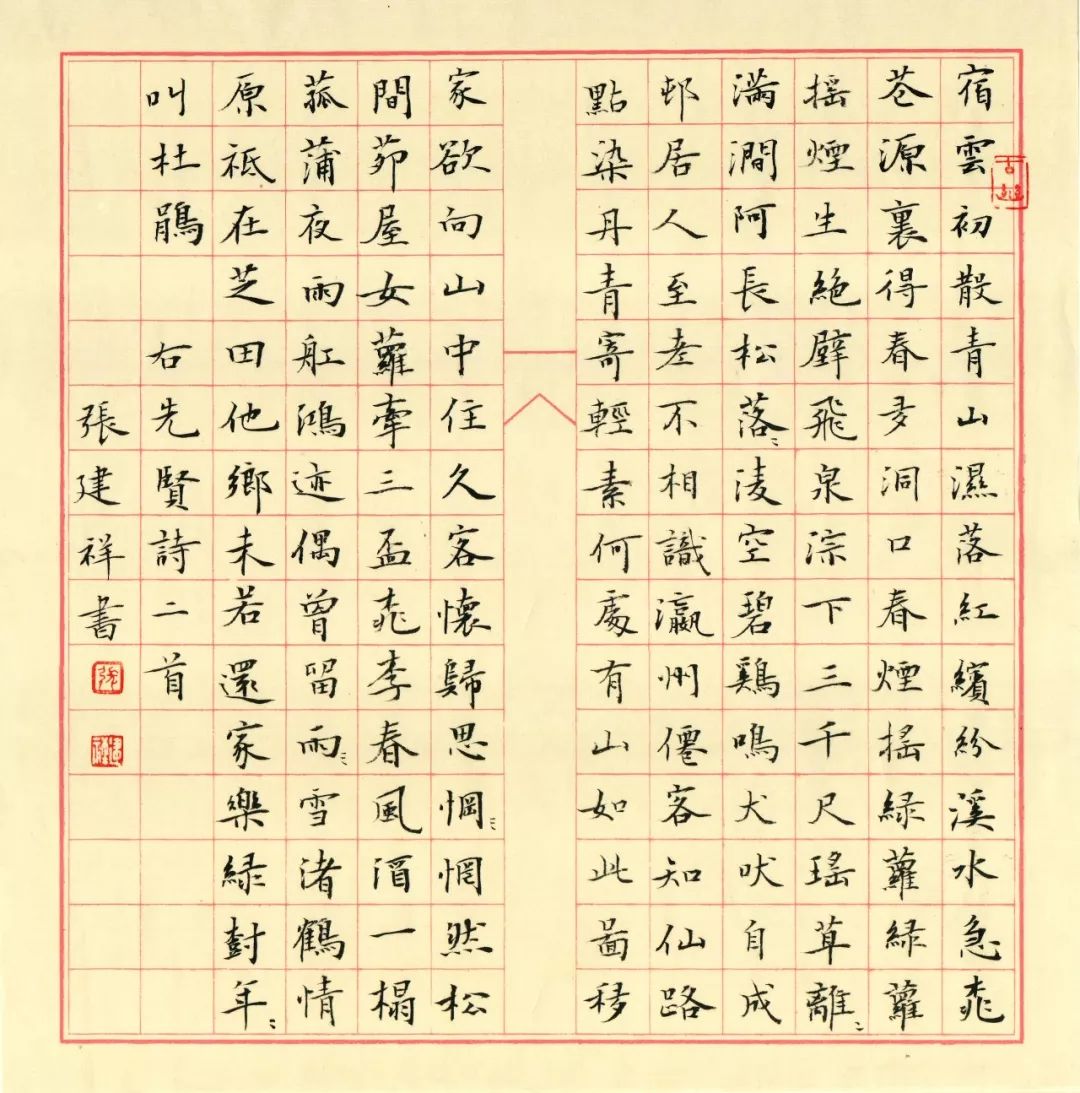 宿雲初散青山濕落紅繽紛溪水急桃
花源裏得春多洞口春煙搖綠蘿綠蘿
搖煙生絕壁飛泉淙下三千尺瑤草離〻
滿澗阿長松落〻淩空碧鷄鳴犬吠自成
邨居人至老不相識瀛州僊客知仙路
點染丹青寄輕素何處有山如此啚移
家欲向山中住久客懷歸思惘〻惘然松
間茆屋女蘿牽三盃桃李春風酒一榻
菰蒲夜雨舡鴻迹偶曾留雨〻雪渚鶴情
原祗在芝田他鄉未若還家樂綠封年〻
叫杜鵑 右先賢詩二首
張建祥書